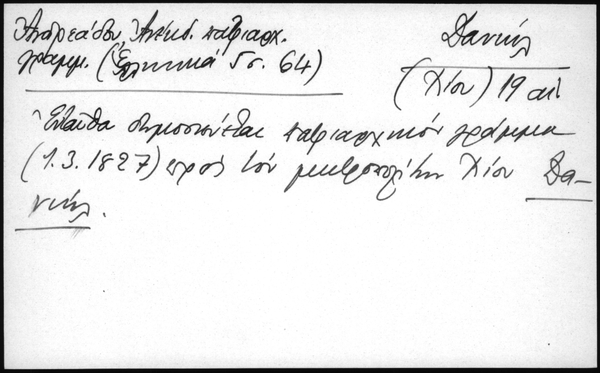 Ἀνδρεάδου Ἀνέκδ. πατριαρχ.
γράμμ. (Ἑλληνικά 5 σ. 64)
Δανιήλ
(Χίου) 19 αἰ.
Ἐνταῦθα δημοσιεύεται πατριαρχικόν γράμμα
(1.3.1827) πρός τόν μητροπολίτην Χίου Δα-
νιήλ.